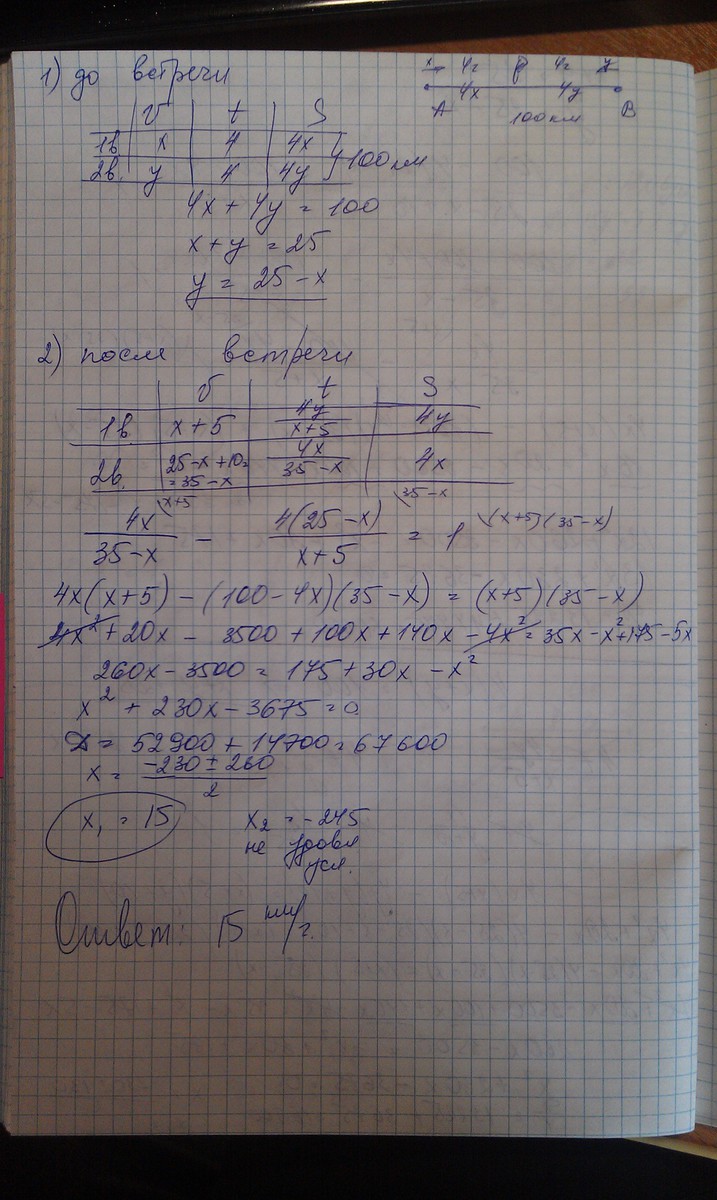 1) до встречи
x 4г 4г y
4x 4y
A 100 км B
v t S
1в. x 4 4x
2в. y 4 4y } 100 км
4x + 4y = 100
x + y = 25
y = 25 - x
2) после встречи
v t S
1в. x + 5 4y/(x+5) 4y
2в. 25-x+10= =35-x 4x/(35-x) 4x
4x/(35-x) \x+5 - 4(25-x)/(x+5) \35-x = 1 \(x+5)(35-x)
4x(x+5) - (100-4x)(35-x) = (x+5)(35-x)
4x² + 20x - 3500 + 100x + 140x - 4x² = 35x - x² + 175 - 5x
260x - 3500 = 175 + 30x - x²
x² + 230x - 3675 = 0
D = 52900 + 14700 = 67600
x = (-230 ± 260)/2
x₁ = 15 x₂ = -245
не удовл
усл.
Ответ: 15 км/г.